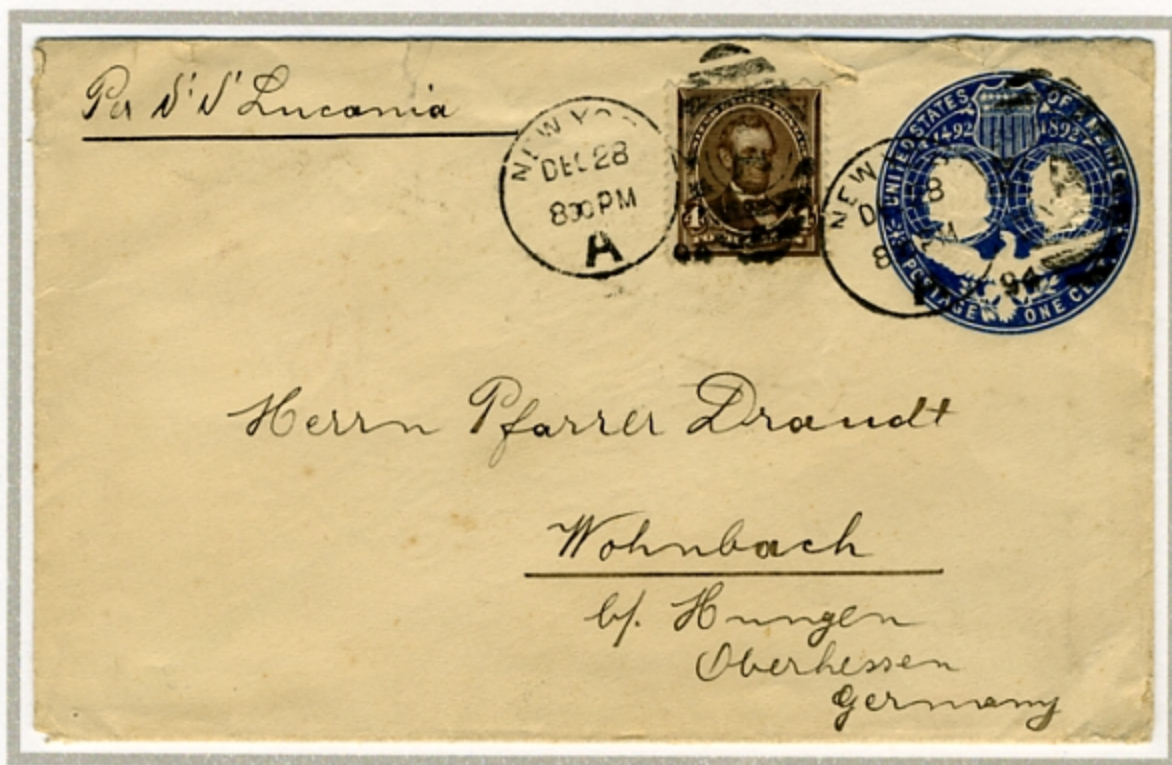 Per S'S' Lucania
NEW YO
DEC 28
8 30 PM
A
94
4
UNITED STATES OF AMERICA
1492 1892
POSTAGE ONE CENT
NEW
D 8
8 M
94
Herrn Pfarrer Drandt
Wohnbach
b/. Hungen
Oberhessen
Germany